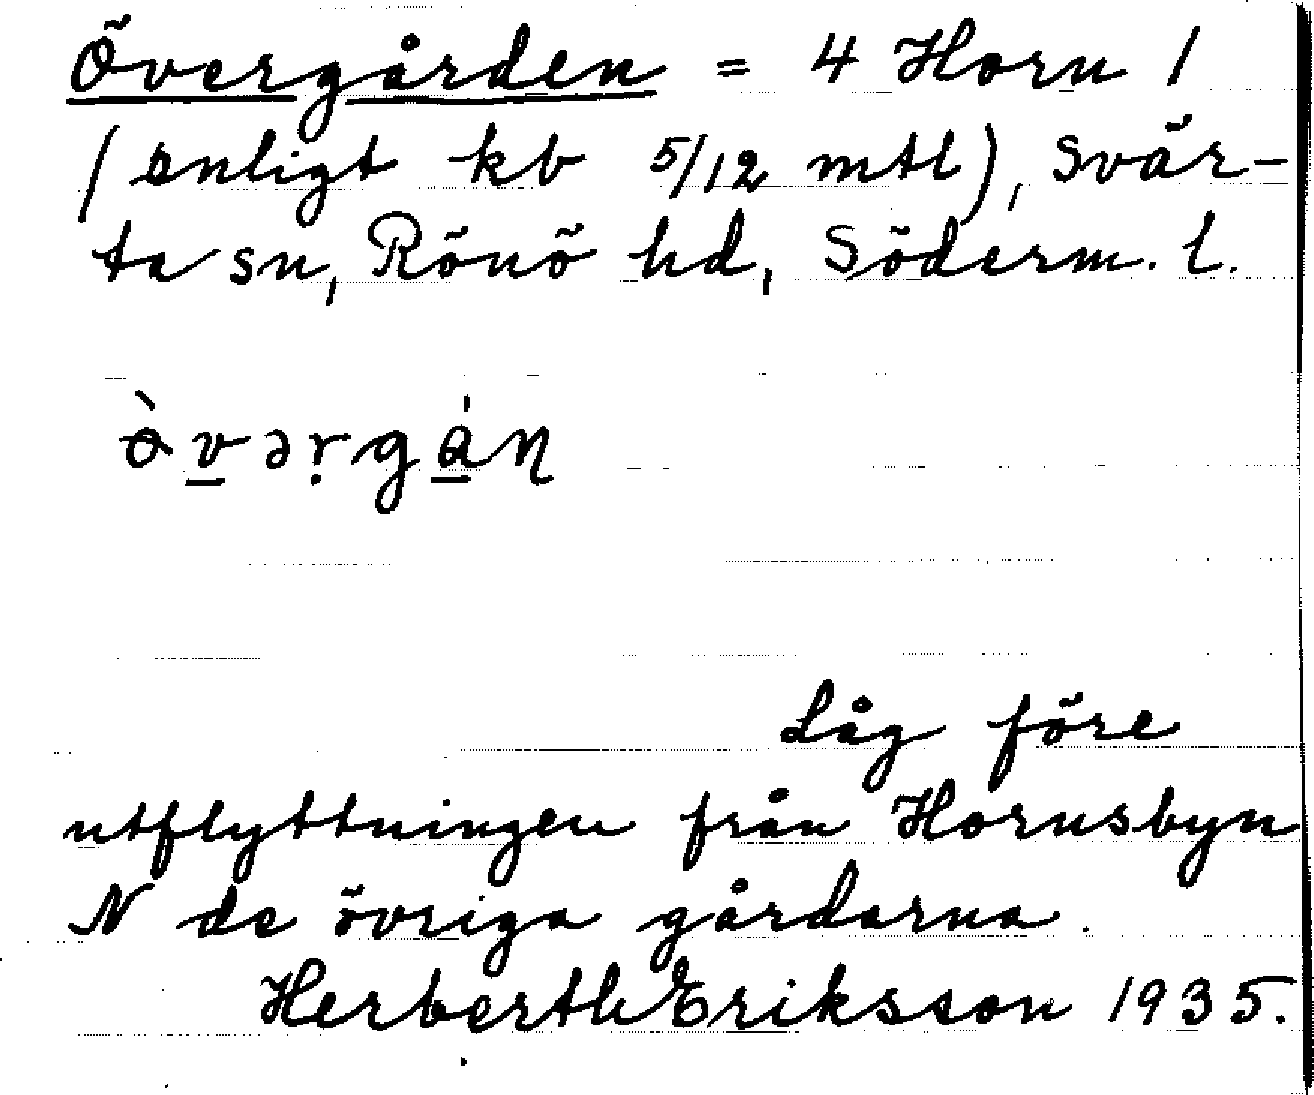 Övergården = 4 Horn 1
(enligt kb 5/12 mtl), Svär-
ta sn, Rönö hd, Söderm. l.
Låg före
utflyttningen från Hornsbyn
N de övriga gårdarna.
Herberth Eriksson 1935.